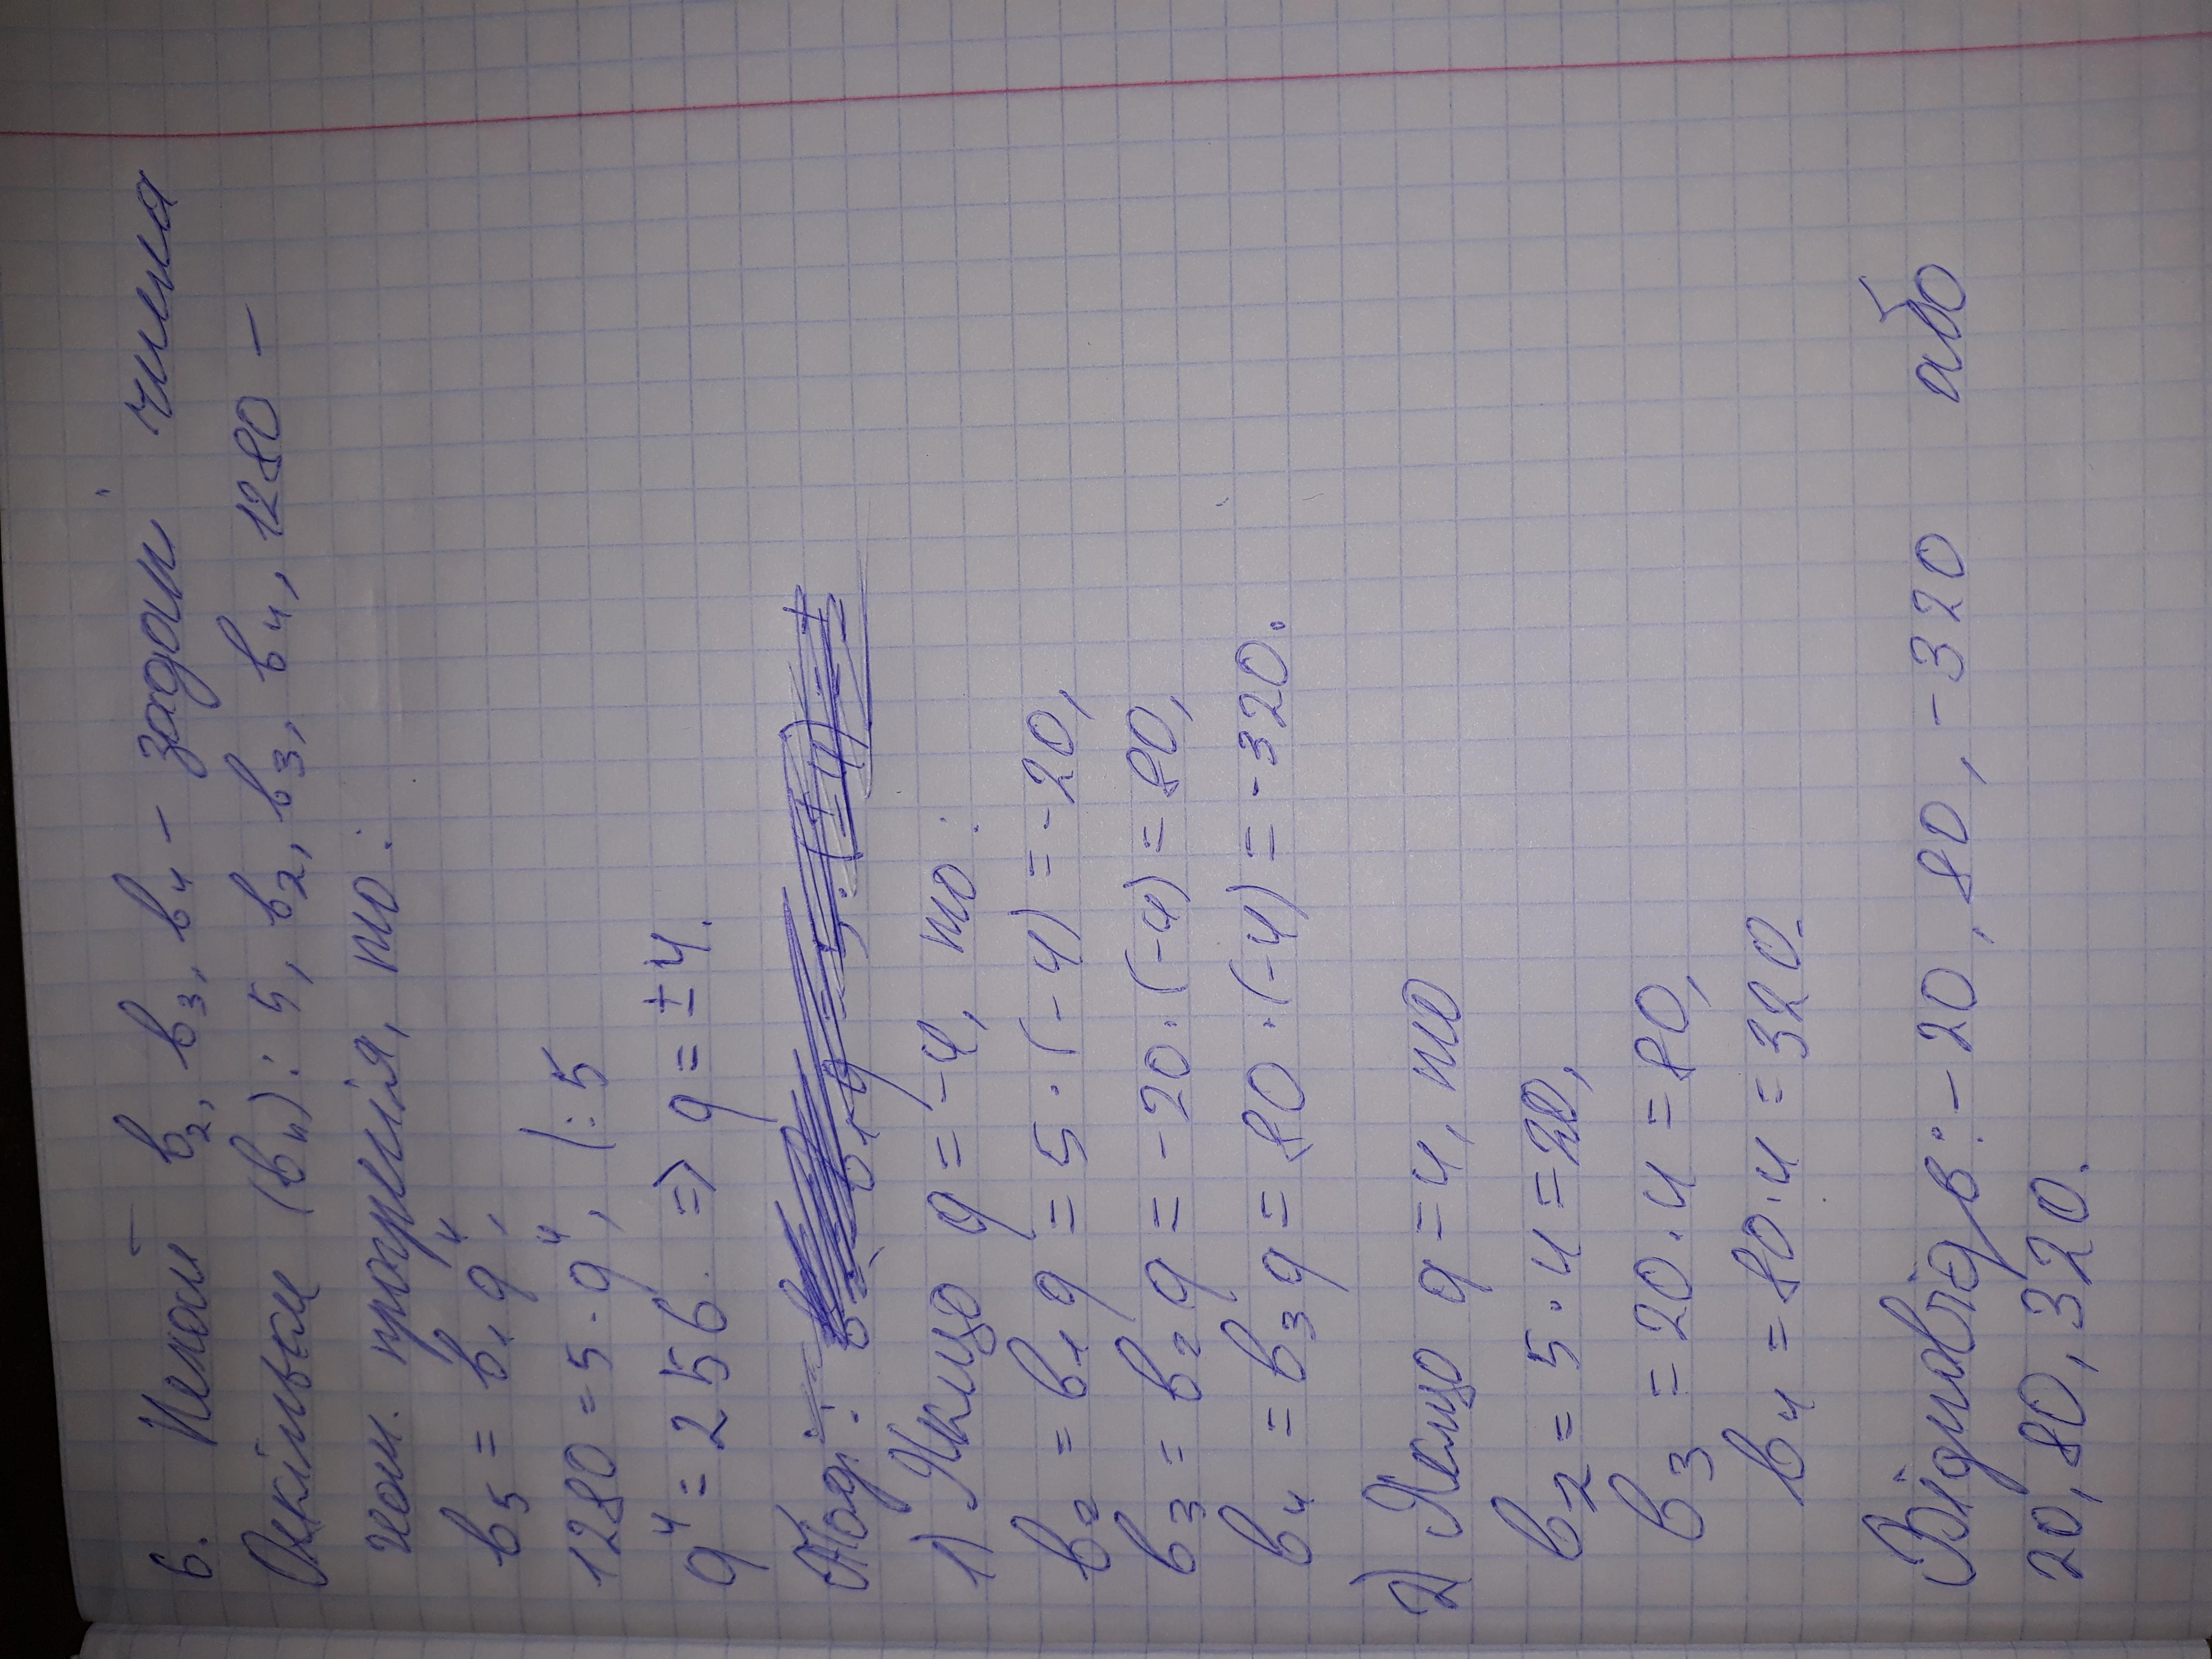 6. Нехай b₂, b₃, b₄ – задані числа
Оскільки (bₙ): 5, b₂, b₃, b₄, 1280 –
геом. прогресія, то:
b₅ = b₁q⁴,
1280 = 5 · q⁴, |:5
q⁴ = 256. => q = ±4.
Тоді:
1) Якщо q = -4, то:
b₂ = b₁q = 5 · (-4) = -20,
b₃ = b₂q = -20 · (-4) = 80,
b₄ = b₃q = 80 · (-4) = -320.
2) Якщо q = 4, то
b₂ = 5 · 4 = 20,
b₃ = 20 · 4 = 80,
b₄ = 80 · 4 = 320.
Відповідь: -20, 80, -320 або
20, 80, 320.